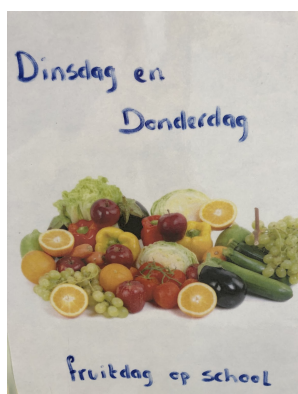 Dinsdag en
Donderdag
fruitdag op school